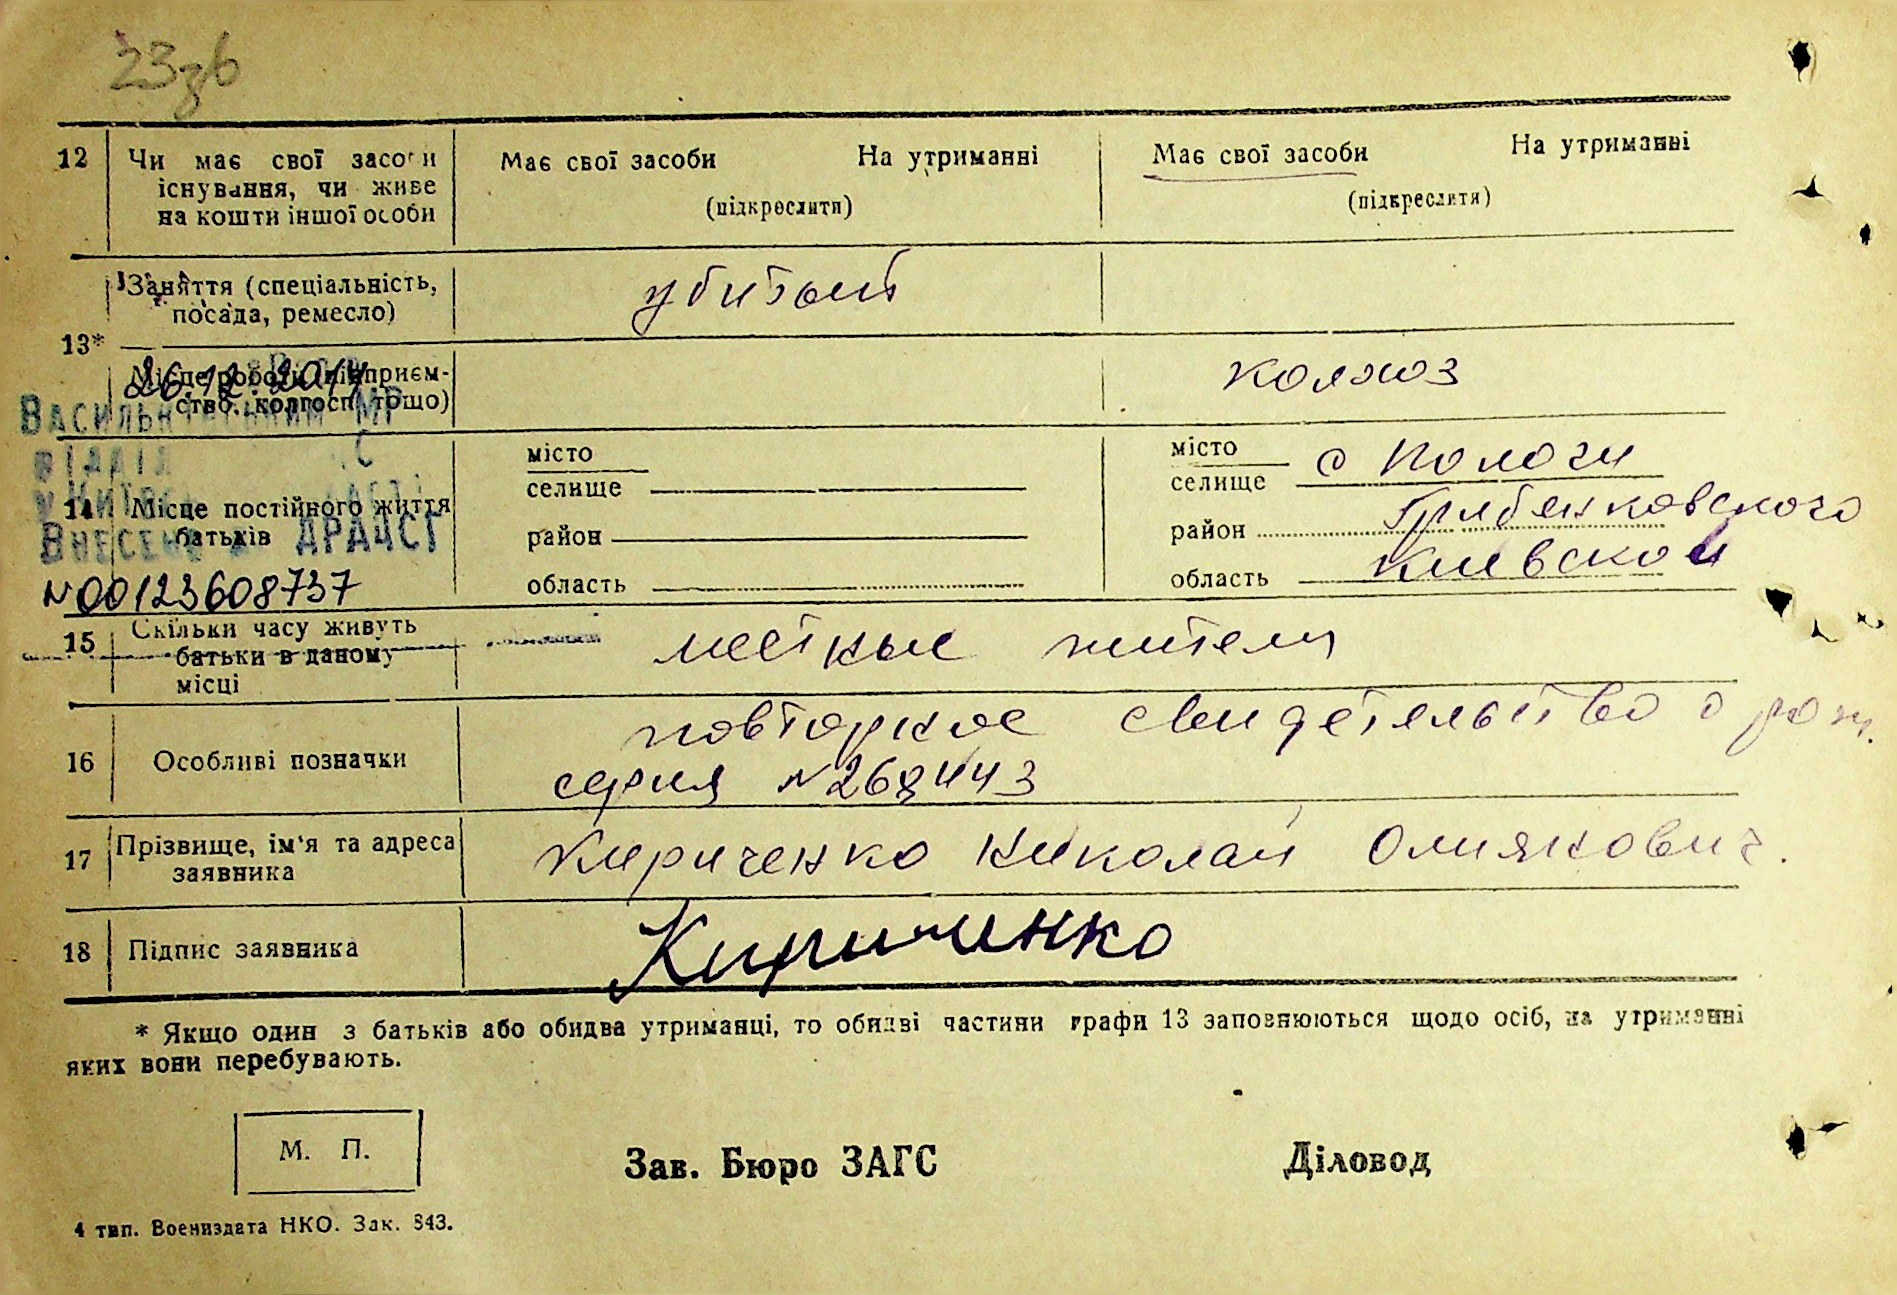 12 Чи має свої засоби Має свої засоби На утриманні Має свої засоби На утриманні
існування, чи живе (підкреслити) (підкреслити)
на кошти іншої особи
Заняття (спеціальність, убитый
посада, ремесло)
13*
Місце роботи (підприєм- колхоз
ство, колгосп тощо)
26.12.2014
Васильківським МР
відділ
місто місто с Пологи
селище селище
14 Місце постійного життя район район Гребенковского
батьків
Внесено ДРАЦСГ
область область Киевской
N00123608737
15 Скільки часу живуть местные жители
батьки в даному
місці
16 Особливі позначки повторное свидетельство о рож.
серия N268443
17 Прізвище, ім'я та адреса Кириченко Николай
заявника
18 Підпис заявника Кириченко
* Якщо один з батьків або обидва утриманці, то обидві частини графи 13 заповнюються щодо осіб, на утриманні
яких вони перебувають.
М. П. Зав. Бюро ЗАГС Діловод
4 тип. Воениздата НКО. Зак. 843.